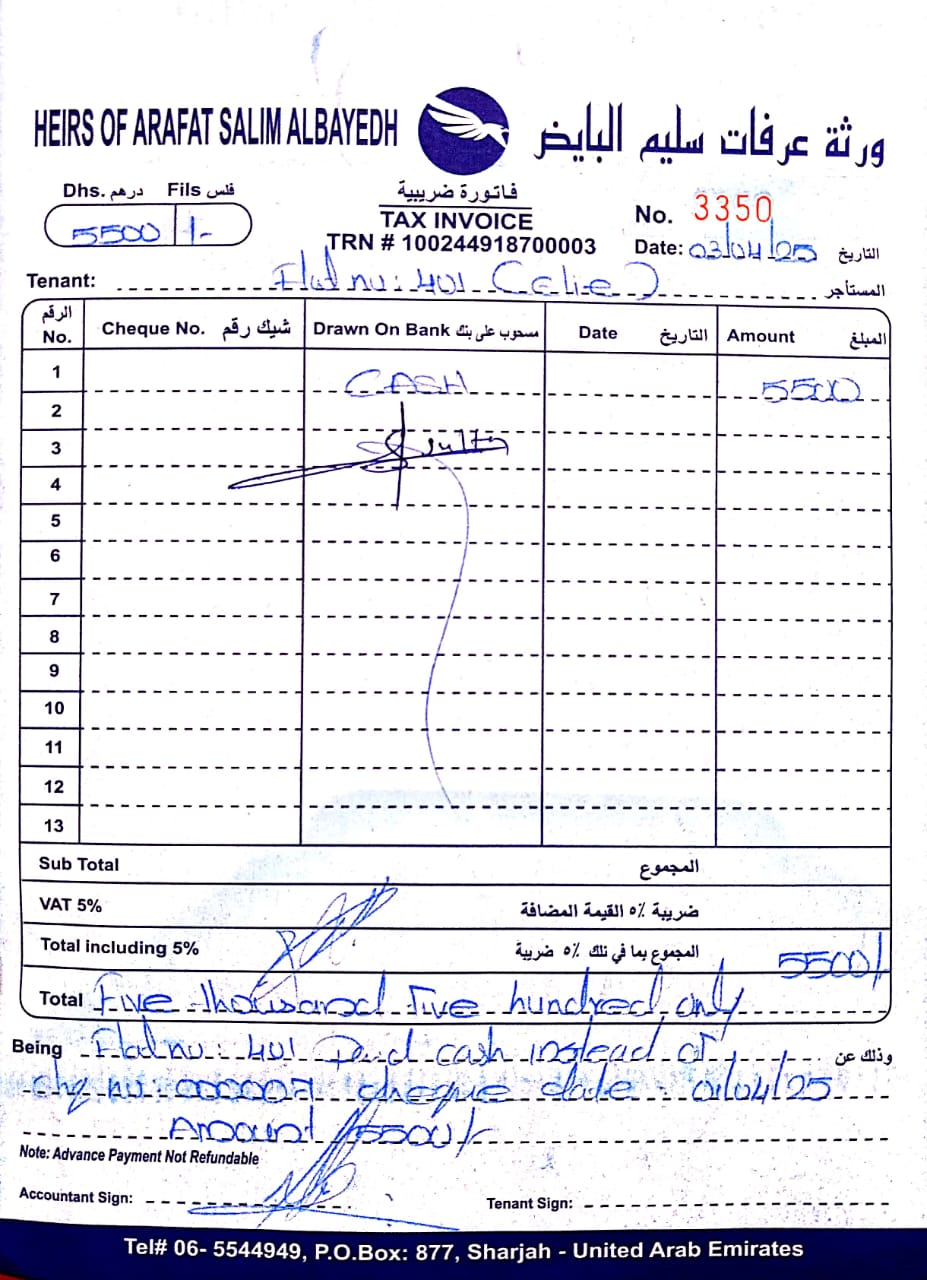 HEIRS OF ARAFAT SALIM ALBAYEDH
ورثة عرفات سليم البايض
Dhs. درهم Fils فلس
5500 /-
فاتورة ضريبية
TAX INVOICE
TRN # 100244918700003
No. 3350
Date: 03/04/25 التاريخ
Tenant: Flat no: 401 (Celie) المستأجر
الرقم No. Cheque No. شيك رقم Drawn On Bank مسحوب على بنك Date التاريخ Amount المبلغ
1 CASH 5500
2
3
4
5
6
7
8
9
10
11
12
13
Sub Total المجموع
VAT 5% ضريبة ٥٪ القيمة المضافة
Total including 5% المجموع بما في تلك ٥٪ ضريبة 5500/-
Total Five thousand Five hundred only
Being Flat no: 401 Paid cash instead of وذلك عن
chq no: 000007 cheque date: 01/04/25
Amount 5500/-
Note: Advance Payment Not Refundable
Accountant Sign:
Tenant Sign:
Tel# 06- 5544949, P.O.Box: 877, Sharjah - United Arab Emirates